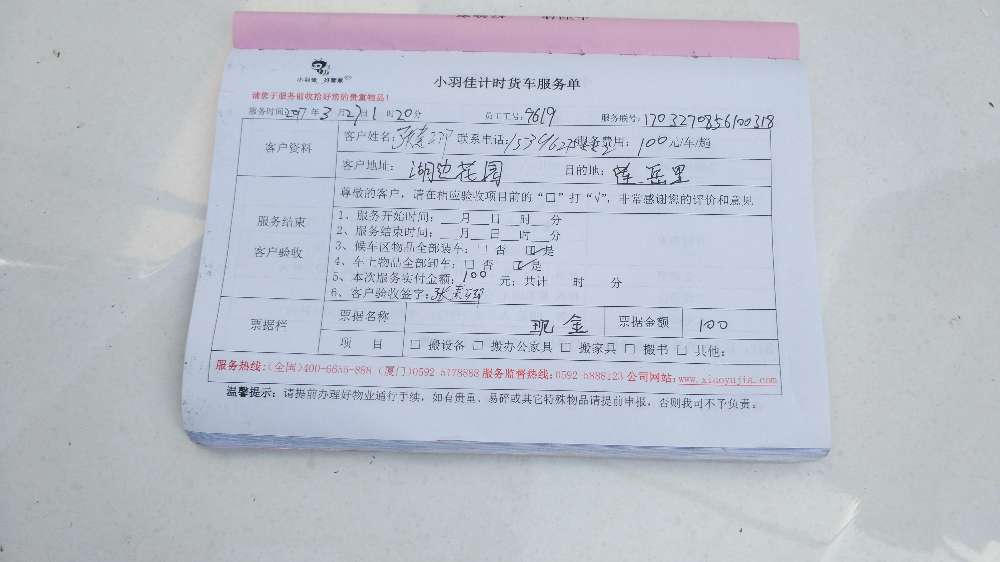 小羽佳 好管家
小羽佳计时货车服务单
请您于服务前收拾好您的贵重物品！
服务时间2017年3月27日1时20分 员工工号：9619 服务联号：1703270856100318
客户资料 客户姓名： 联系电话： 服务费用：100元/车/趟
客户地址：湖边花园 目的地：莲岳里
尊敬的客户，请在相应验收项目前的“□”打“√”，非常感谢您的评价和意见
服务结束
客户验收
1、服务开始时间：__月__日__时__分
2、服务结束时间：__月__日__时__分
3、候车区物品全部装车：□ 否 ☑是
4、车上物品全部卸车：□ 否 ☑是
5、本次服务实付金额：100 元；共计 时 分
6、客户验收签字：
票据栏 票据名称 现金 票据金额 100
项 目 □ 搬设备 □ 搬办公家具 □ 搬家具 □ 搬书 □ 其他：
服务热线：(全国)400-6655-868 (厦门)0592-5178888 服务监督热线：0592-5886123 公司网站：www.xiaoyujia.com
温馨提示：请提前办理好物业通行手续，如有贵重、易碎或其它特殊物品请提前申报，否则我司不予负责。